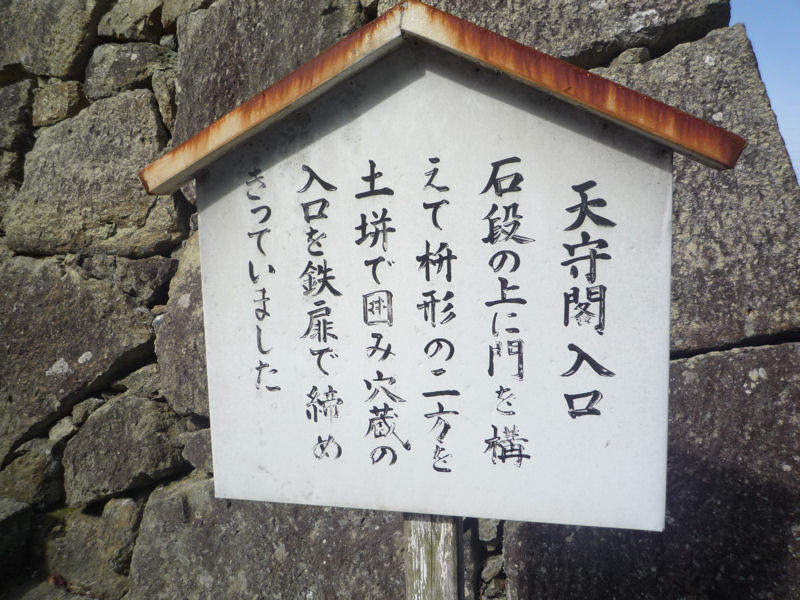 天守閣入口
石段の上に門を構
えて枡形の二方を
土塀で囲み穴蔵の
入口を鉄扉で締め
きっていました